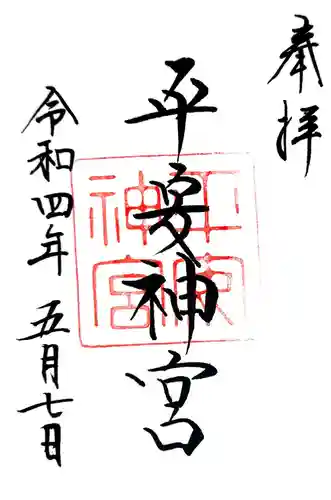 奉拝
平安神宮
平安神宮
令和四年 五月七日